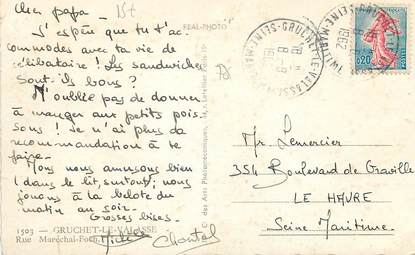 Cher papa -
J'espère que tu t'ac-
commodes avec ta vie de
célibataire ! Les sandwiches
sont-ils bons ?
N'oublie pas de donner
à manger aux petits pois-
sons ! Je n'ai plus de
recommandation à te
faire.
Nous nous amusons bien
(dans le lit, surtout), nous
jouons à la belote du
matin au soir.
Grosses bises.
Chantal
1503 - GRUCHET-LE-VALASSE
Rue Maréchal-Foch
REAL-PHOTO
GRUCHET-LE-VALASSE
SEINE-MARITIME
8-8
1962
0,20
Mr. Lemercier
354 Boulevard de Graville
LE HAVRE
Seine Maritime